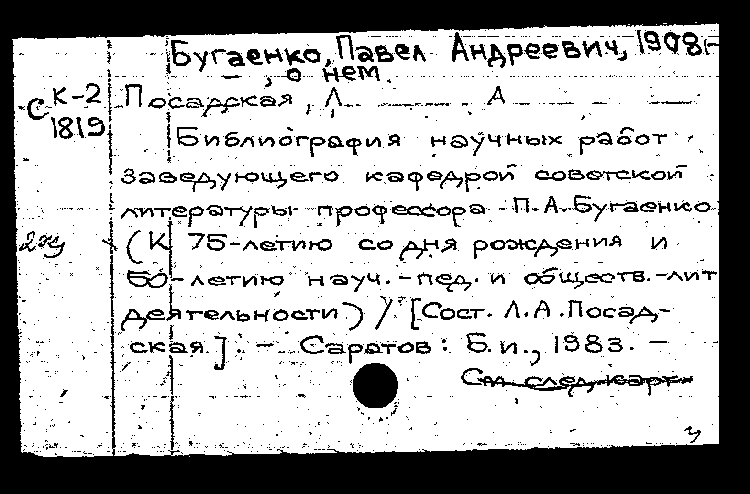 Бугаенко, Павел Андреевич, 1908-
– , о нем.
С К-2 1819
Посадская, Л. А.
Библиография научных работ
заведующего кафедрой советской
литературы профессора П.А. Бугаенко
(К 75-летию со дня рождения и
50-летию науч.-пед. и обществ.-лит
деятельности) / [Сост. Л.А. Посад-
ская]. – Саратов: Б.и., 1983. –
См. след. карт.